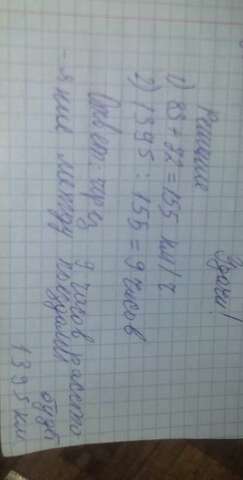 Удачи!
Решение
1) 85 + 72 = 155 км/ч
2) 1395 : 155 = 9 часов
Ответ: через 9 часов расстоя
-яние между поездами будет
1395 км